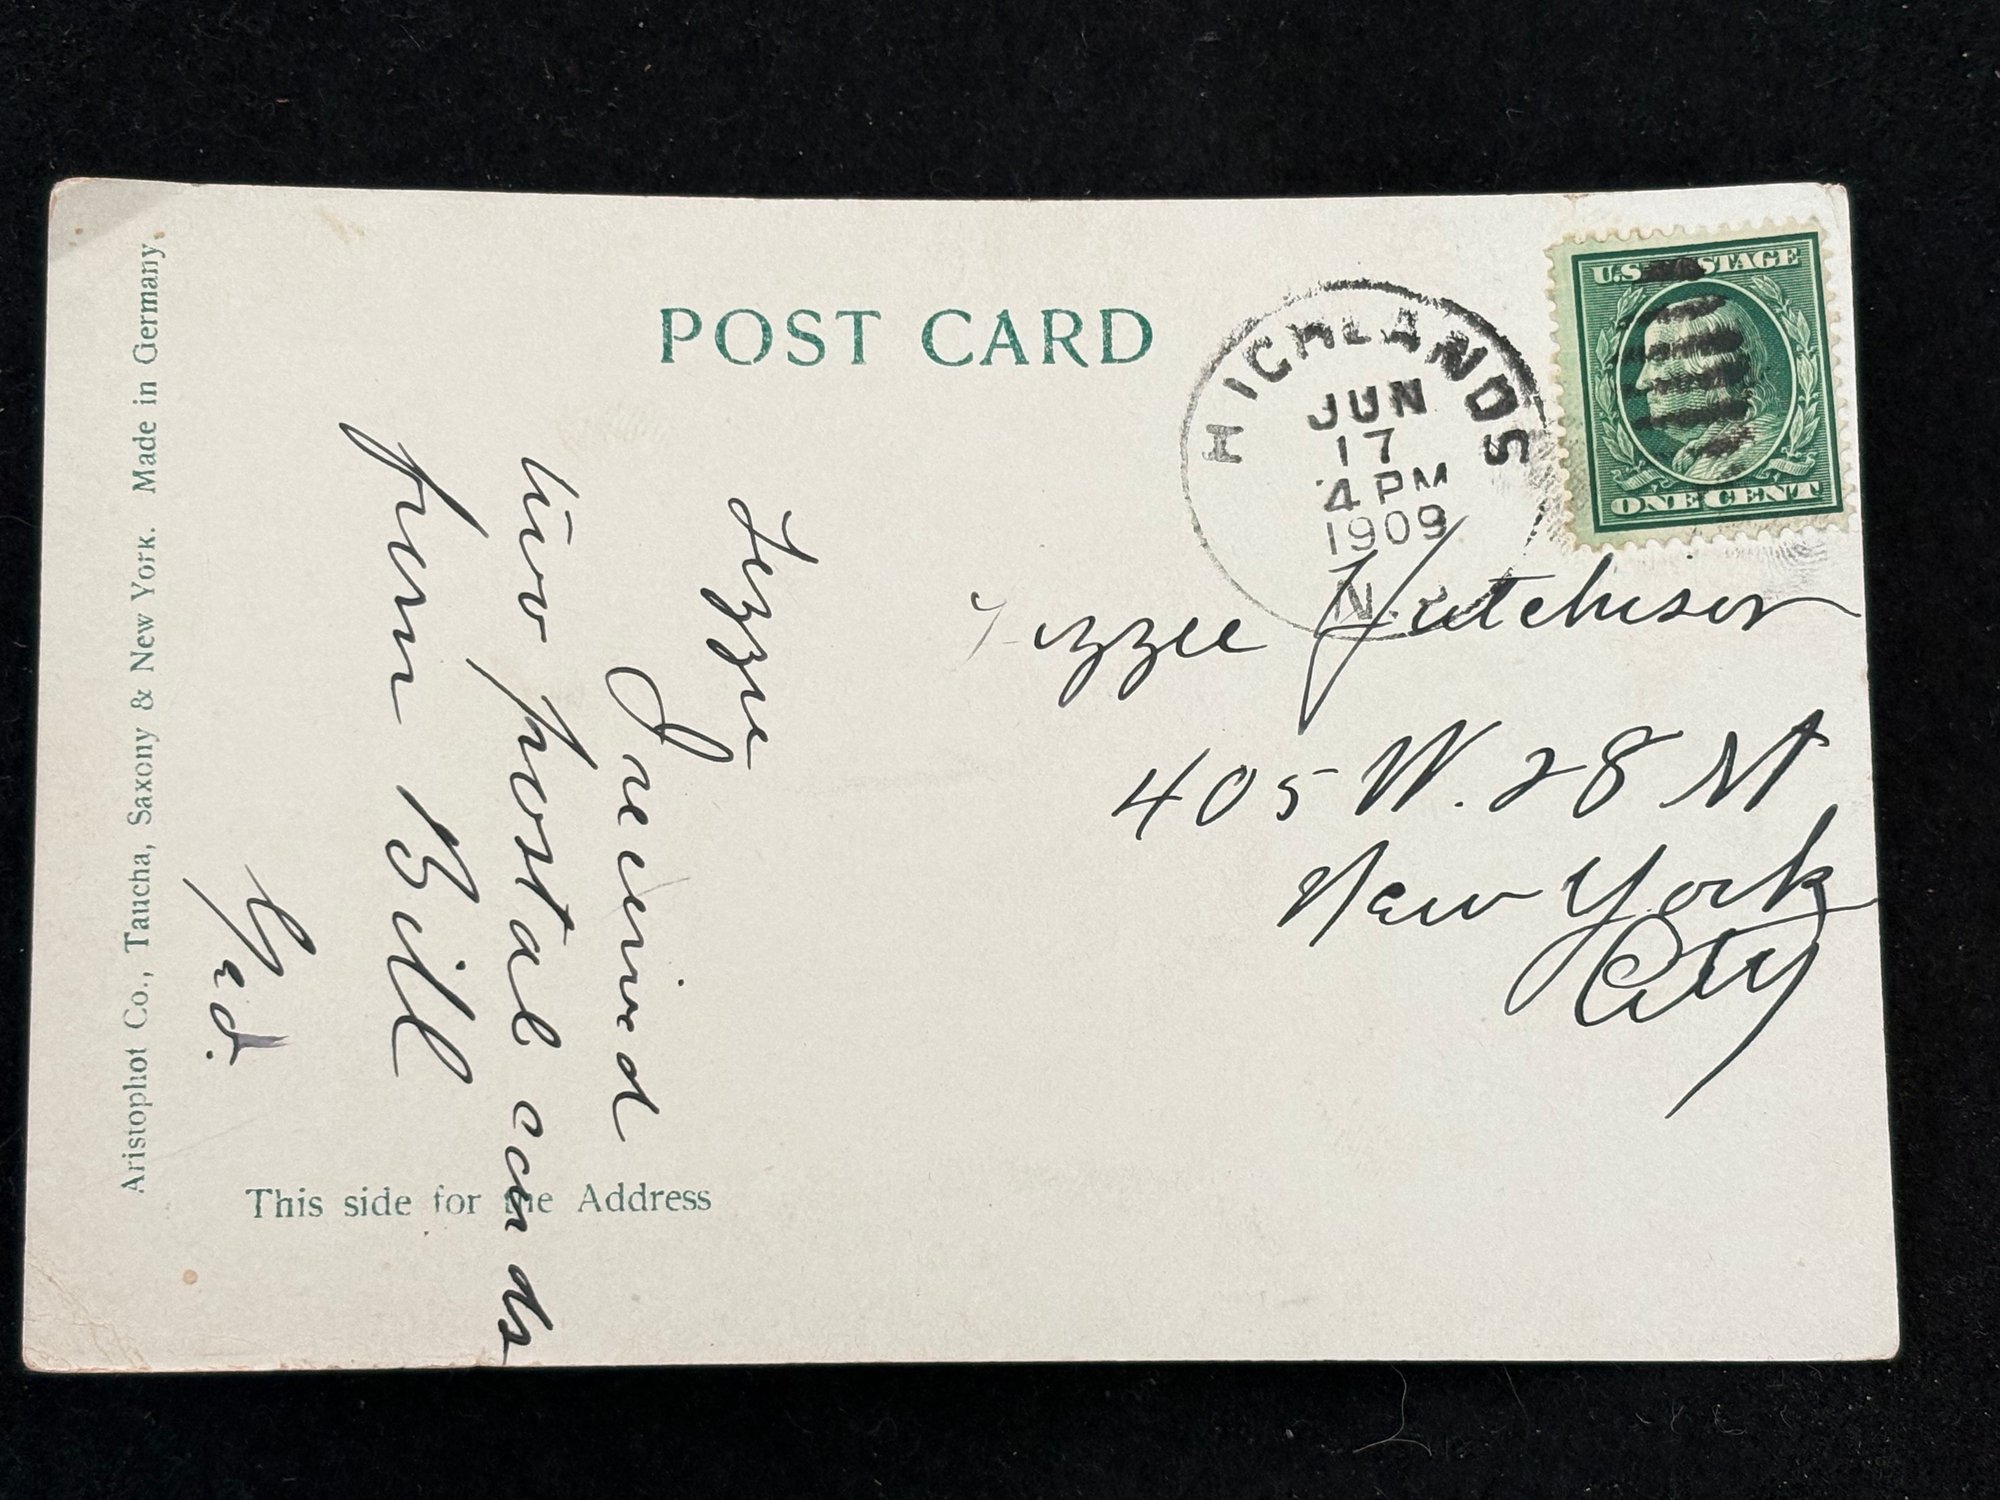 POST CARD
Aristophot Co., Taucha, Saxony & New York. Made in Germany.
This side for the Address
U.S. POSTAGE
ONE CENT
HIGHLANDS
JUN
17
4 PM
1909
N.J.
Lizzie Hutchison
405 W. 28 St
New York
City
Lizzie
I received
two postal cards
from Bill